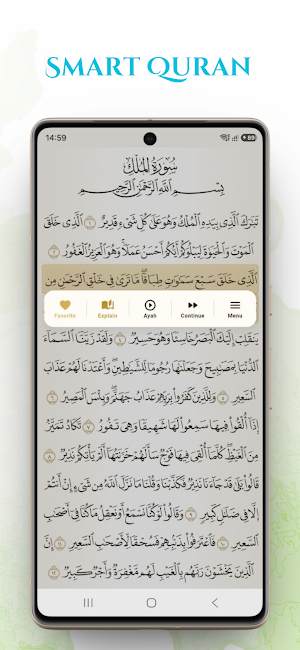 SMART QURAN
14:59
سُورَةُ المُلْكِ
بِسْمِ ٱللَّهِ ٱلرَّحْمَٰنِ ٱلرَّحِيمِ
تَبَٰرَكَ ٱلَّذِى بِيَدِهِ ٱلْمُلْكُ وَهُوَ عَلَىٰ كُلِّ شَىْءٍ قَدِيرٌ ١ ٱلَّذِى خَلَقَ
ٱلْمَوْتَ وَٱلْحَيَوٰةَ لِيَبْلُوَكُمْ أَيُّكُمْ أَحْسَنُ عَمَلًا وَهُوَ ٱلْعَزِيزُ ٱلْغَفُورُ ٢
ٱلَّذِى خَلَقَ سَبْعَ سَمَٰوَٰتٍ طِبَاقًا مَّا تَرَىٰ فِى خَلْقِ ٱلرَّحْمَٰنِ مِن
Favorite Explain Ayah Continue Menu
يَنقَلِبْ إِلَيْكَ ٱلْبَصَرُ خَاسِئًا وَهُوَ حَسِيرٌ ٤ وَلَقَدْ زَيَّنَّا ٱلسَّمَآءَ
ٱلدُّنْيَا بِمَصَٰبِيحَ وَجَعَلْنَٰهَا رُجُومًا لِّلشَّيَٰطِينِ وَأَعْتَدْنَا لَهُمْ عَذَابَ
ٱلسَّعِيرِ ٥ وَلِلَّذِينَ كَفَرُوا۟ بِرَبِّهِمْ عَذَابُ جَهَنَّمَ وَبِئْسَ ٱلْمَصِيرُ ٦
إِذَآ أُلْقُوا۟ فِيهَا سَمِعُوا۟ لَهَا شَهِيقًا وَهِىَ تَفُورُ ٧ تَكَادُ تَمَيَّزُ
مِنَ ٱلْغَيْظِ كُلَّمَآ أُلْقِىَ فِيهَا فَوْجٌ سَأَلَهُمْ خَزَنَتُهَآ أَلَمْ يَأْتِكُمْ نَذِيرٌ ٨
قَالُوا۟ بَلَىٰ قَدْ جَآءَنَا نَذِيرٌ فَكَذَّبْنَا وَقُلْنَا مَا نَزَّلَ ٱللَّهُ مِن شَىْءٍ إِنْ أَنتُمْ
إِلَّا فِى ضَلَٰلٍ كَبِيرٍ ٩ وَقَالُوا۟ لَوْ كُنَّا نَسْمَعُ أَوْ نَعْقِلُ مَا كُنَّا فِىٓ أَصْحَٰبِ
ٱلسَّعِيرِ ١٠ فَٱعْتَرَفُوا۟ بِذَنۢبِهِمْ فَسُحْقًا لِّأَصْحَٰبِ ٱلسَّعِيرِ ١١ إِنَّ
ٱلَّذِينَ يَخْشَوْنَ رَبَّهُم بِٱلْغَيْبِ لَهُم مَّغْفِرَةٌ وَأَجْرٌ كَبِيرٌ ١٢